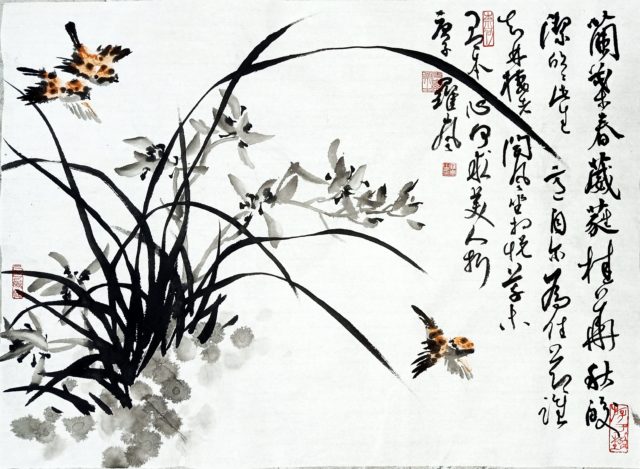 蘭葉春葳蕤桂華秋皎
潔欣々此生意自尔為佳節誰
知林棲者聞風坐相悅草木
有本心何求美人折
羅嵐